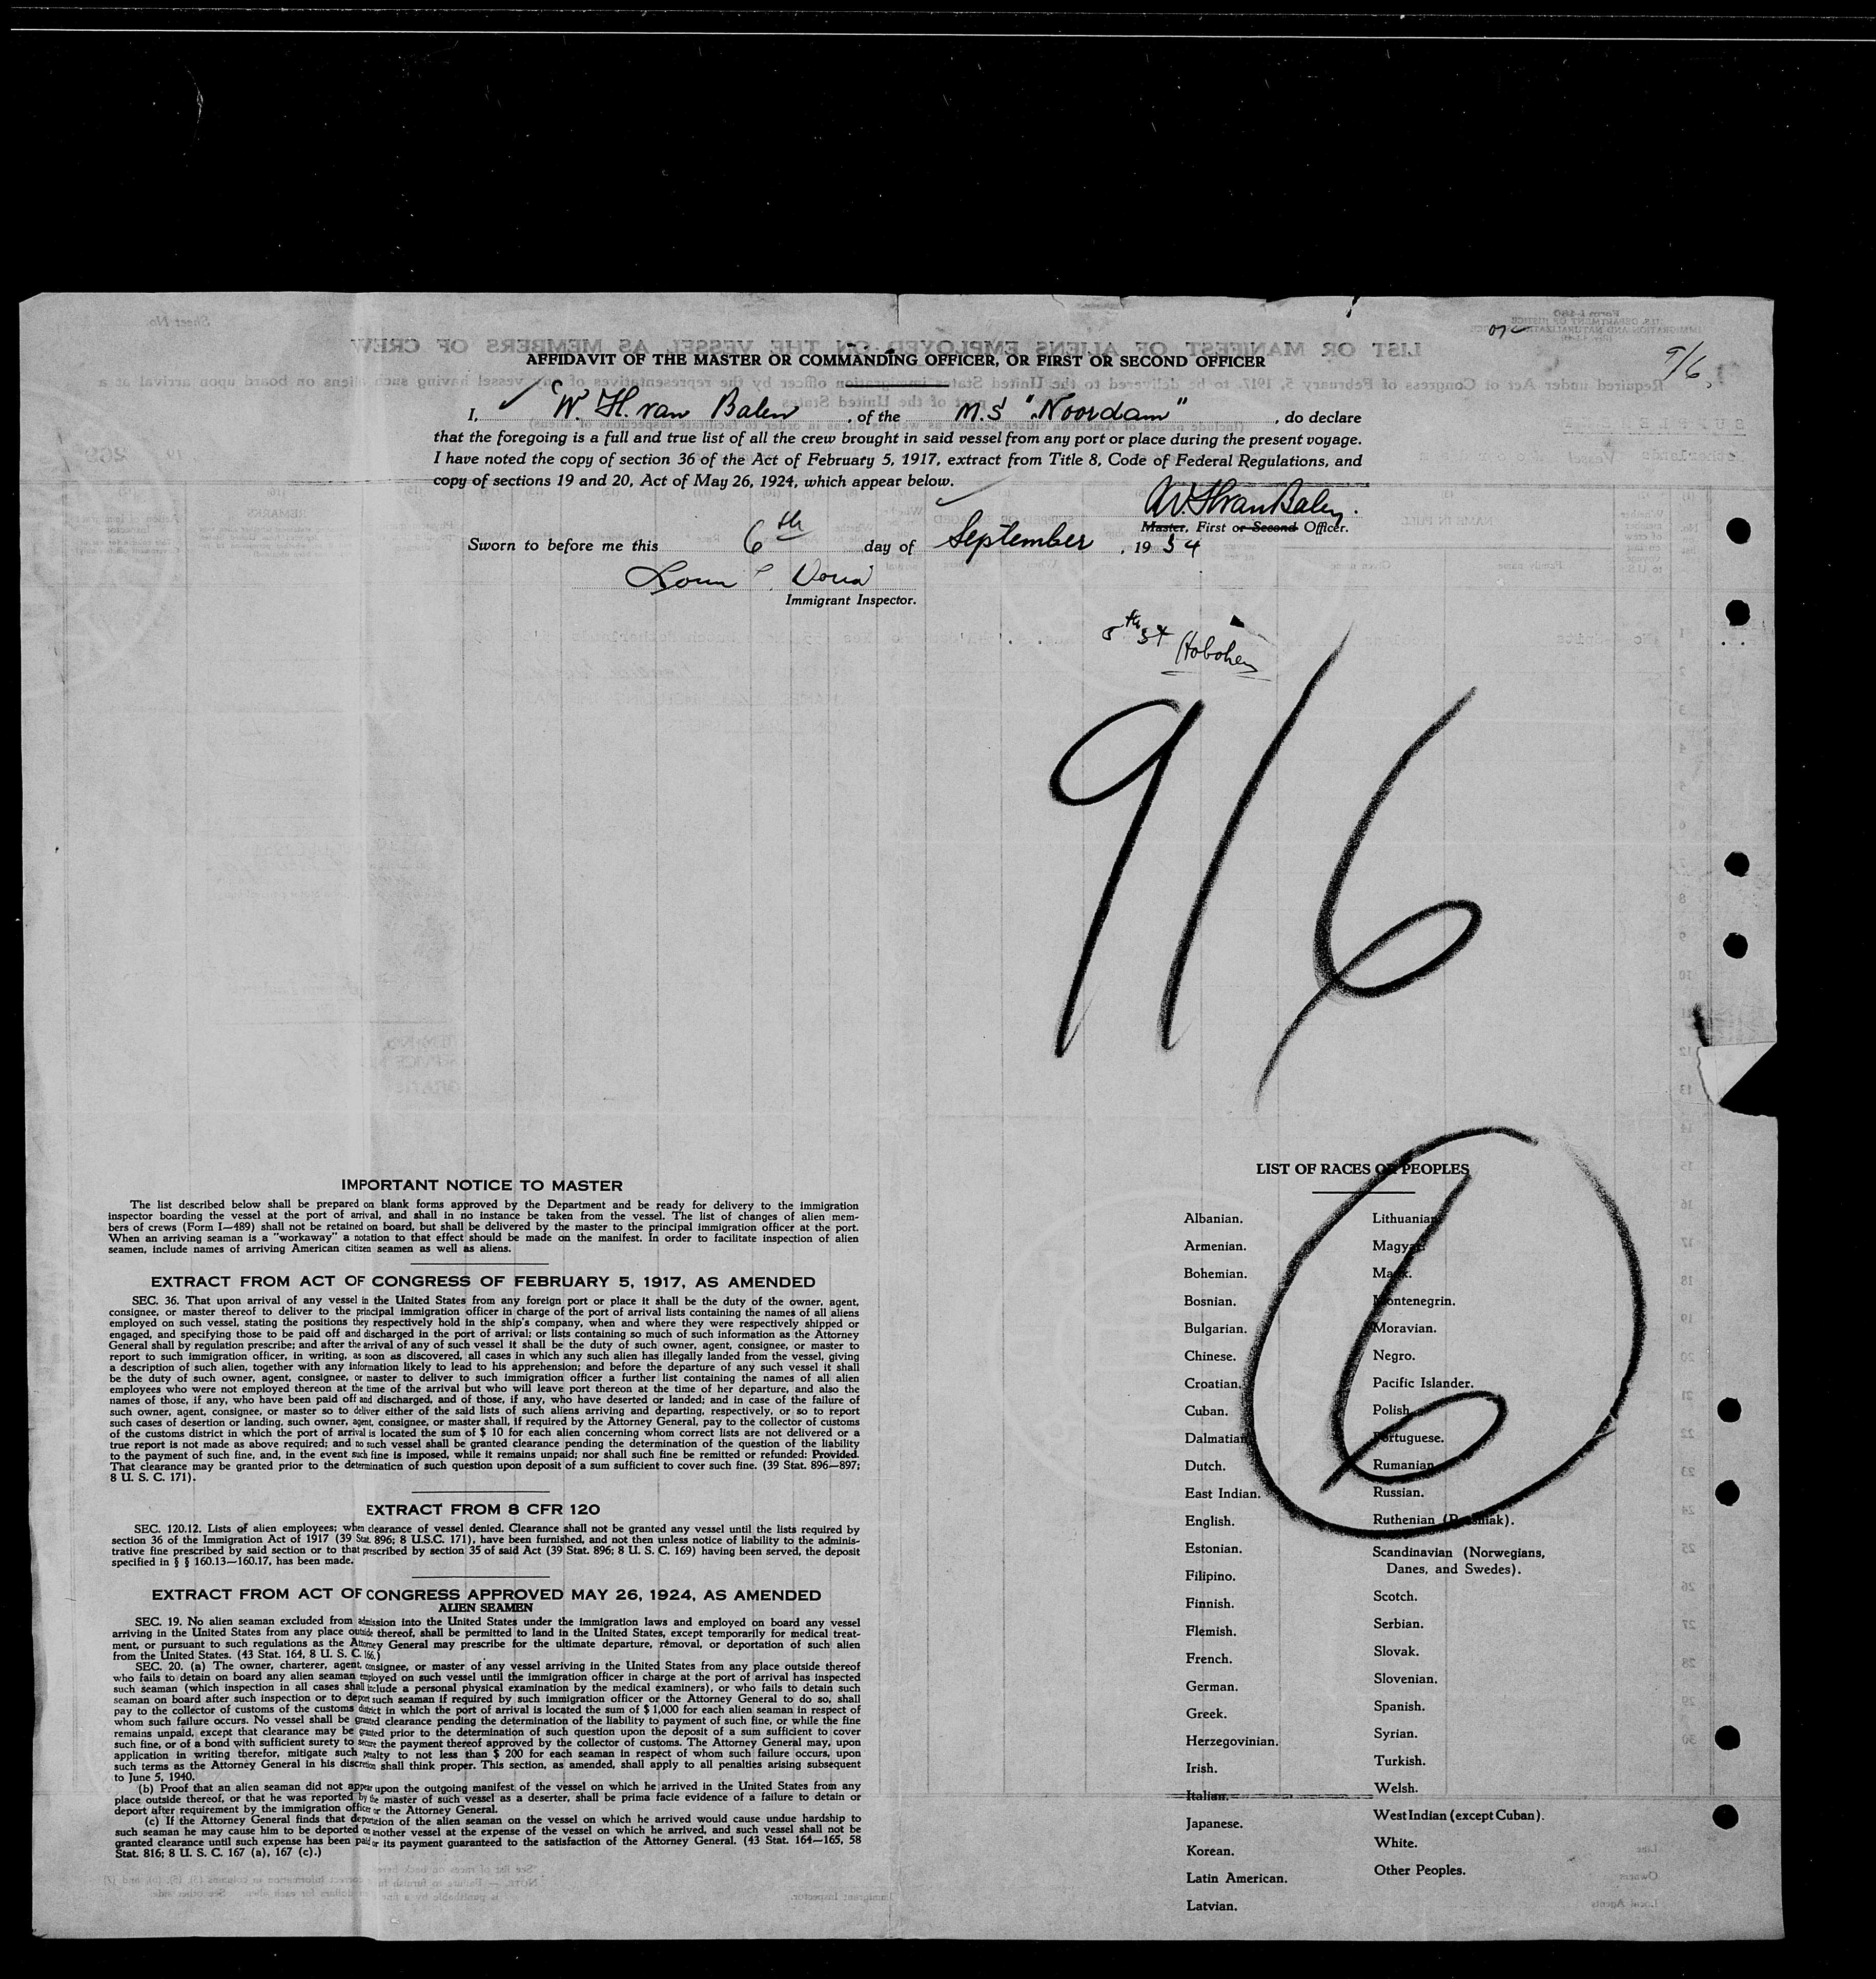 9/6
AFFIDAVIT OF THE MASTER OR COMMANDING OFFICER, OR FIRST OR SECOND OFFICER
I, W. H. van Balen, of the M.S "Noordam", do declare
that the foregoing is a full and true list of all the crew brought in said vessel from any port or place during the present voyage.
I have noted the copy of section 36 of the Act of February 5, 1917, extract from Title 8, Code of Federal Regulations, and
copy of sections 19 and 20, Act of May 26, 1924, which appear below.
W. H. van Balen.
Master, First or Second Officer.
Sworn to before me this 6th day of September, 1954
Immigrant Inspector.
5th St Hoboken
9/6
6
IMPORTANT NOTICE TO MASTER
The list described below shall be prepared on blank forms approved by the Department and be ready for delivery to the immigration
inspector boarding the vessel at the port of arrival, and shall in no instance be taken from the vessel. The list of changes of alien mem-
bers of crews (Form I—489) shall not be retained on board, but shall be delivered by the master to the principal immigration officer at the port.
When an arriving seaman is a "workaway" a notation to that effect should be made on the manifest. In order to facilitate inspection of alien
seamen, include names of arriving American citizen seamen as well as aliens.
EXTRACT FROM ACT OF CONGRESS OF FEBRUARY 5, 1917, AS AMENDED
SEC. 36. That upon arrival of any vessel in the United States from any foreign port or place it shall be the duty of the owner, agent,
consignee, or master thereof to deliver to the principal immigration officer in charge of the port of arrival lists containing the names of all aliens
employed on such vessel, stating the positions they respectively hold in the ship's company, when and where they were respectively shipped or
engaged, and specifying those to be paid off and discharged in the port of arrival; or lists containing so much of such information as the Attorney
General shall by regulation prescribe; and after the arrival of any of such vessel it shall be the duty of such owner, agent, consignee, or master to
report to such immigration officer, in writing, as soon as discovered, all cases in which any such alien has illegally landed from the vessel, giving
a description of such alien, together with any information likely to lead to his apprehension; and before the departure of any such vessel it shall
be the duty of such owner, agent, consignee, or master to deliver to such immigration officer a further list containing the names of all alien
employees who were not employed thereon at the time of the arrival but who will leave port thereon at the time of her departure, and also the
names of those, if any, who have been paid off and discharged, and of those, if any, who have deserted or landed; and in case of the failure of
such owner, agent, consignee, or master so to deliver either of the said lists of such aliens arriving and departing, respectively, or so to report
such cases of desertion or landing, such owner, agent, consignee, or master shall, if required by the Attorney General, pay to the collector of customs
of the customs district in which the port of arrival is located the sum of $ 10 for each alien concerning whom correct lists are not delivered or a
true report is not made as above required; and no such vessel shall be granted clearance pending the determination of the question of the liability
to the payment of such fine, and, in the event such fine is imposed, while it remains unpaid; nor shall such fine be remitted or refunded: Provided.
That clearance may be granted prior to the determination of such question upon deposit of a sum sufficient to cover such fine. (39 Stat. 896—897;
8 U. S. C. 171).
EXTRACT FROM 8 CFR 120
SEC. 120.12. Lists of alien employees; when clearance of vessel denied. Clearance shall not be granted any vessel until the lists required by
section 36 of the Immigration Act of 1917 (39 Stat. 896; 8 U.S.C. 171), have been furnished, and not then unless notice of liability to the adminis-
trative fine prescribed by said section or to that prescribed by section 35 of said Act (39 Stat. 896; 8 U. S. C. 169) having been served, the deposit
specified in § § 160.13—160.17, has been made.
EXTRACT FROM ACT OF CONGRESS APPROVED MAY 26, 1924, AS AMENDED
ALIEN SEAMEN
SEC. 19. No alien seaman excluded from admission into the United States under the immigration laws and employed on board any vessel
arriving in the United States from any place outside thereof, shall be permitted to land in the United States, except temporarily for medical treat-
ment, or pursuant to such regulations as the Attorney General may prescribe for the ultimate departure, removal, or deportation of such alien
from the United States. (43 Stat. 164, 8 U. S. C. 166.)
SEC. 20. (a) The owner, charterer, agent, consignee, or master of any vessel arriving in the United States from any place outside thereof
who fails to detain on board any alien seaman employed on such vessel until the immigration officer in charge at the port of arrival has inspected
such seaman (which inspection in all cases shall include a personal physical examination by the medical examiners), or who fails to detain such
seaman on board after such inspection or to deport such seaman if required by such immigration officer or the Attorney General to do so, shall
pay to the collector of customs of the customs district in which the port of arrival is located the sum of $ 1,000 for each alien seaman in respect of
whom such failure occurs. No vessel shall be granted clearance pending the determination of the liability to payment of such fine, or while the fine
remains unpaid, except that clearance may be granted prior to the determination of such question upon the deposit of a sum sufficient to cover
such fine, or of a bond with sufficient surety to secure the payment thereof approved by the collector of customs. The Attorney General may, upon
application in writing therefor, mitigate such penalty to not less than $ 200 for each seaman in respect of whom such failure occurs, upon
such terms as the Attorney General in his discretion shall think proper. This section, as amended, shall apply to all penalties arising subsequent
to June 5, 1940.
(b) Proof that an alien seaman did not appear upon the outgoing manifest of the vessel on which he arrived in the United States from any
place outside thereof, or that he was reported by the master of such vessel as a deserter, shall be prima facie evidence of a failure to detain or
deport after requirement by the immigration officer or the Attorney General.
(c) If the Attorney General finds that deportation of the alien seaman on the vessel on which he arrived would cause undue hardship to
such seaman he may cause him to be deported on another vessel at the expense of the vessel on which he arrived, and such vessel shall not be
granted clearance until such expense has been paid or its payment guaranteed to the satisfaction of the Attorney General. (43 Stat. 164—165, 58
Stat. 816; 8 U. S. C. 167 (a), 167 (c).)
LIST OF RACES OR PEOPLES
Albanian.
Armenian.
Bohemian.
Bosnian.
Bulgarian.
Chinese.
Croatian.
Cuban.
Dalmatian
Dutch.
East Indian.
English.
Estonian.
Filipino.
Finnish.
Flemish.
French.
German.
Greek.
Herzegovinian.
Irish.
Italian.
Japanese.
Korean.
Latin American.
Latvian.
Lithuanian
Magyar.
Manx.
Montenegrin.
Moravian.
Negro.
Pacific Islander.
Polish
Portuguese.
Rumanian
Russian.
Ruthenian (Russniak).
Scandinavian (Norwegians,
Danes, and Swedes).
Scotch.
Serbian.
Slovak.
Slovenian.
Spanish.
Syrian.
Turkish.
Welsh.
West Indian (except Cuban).
White.
Other Peoples.